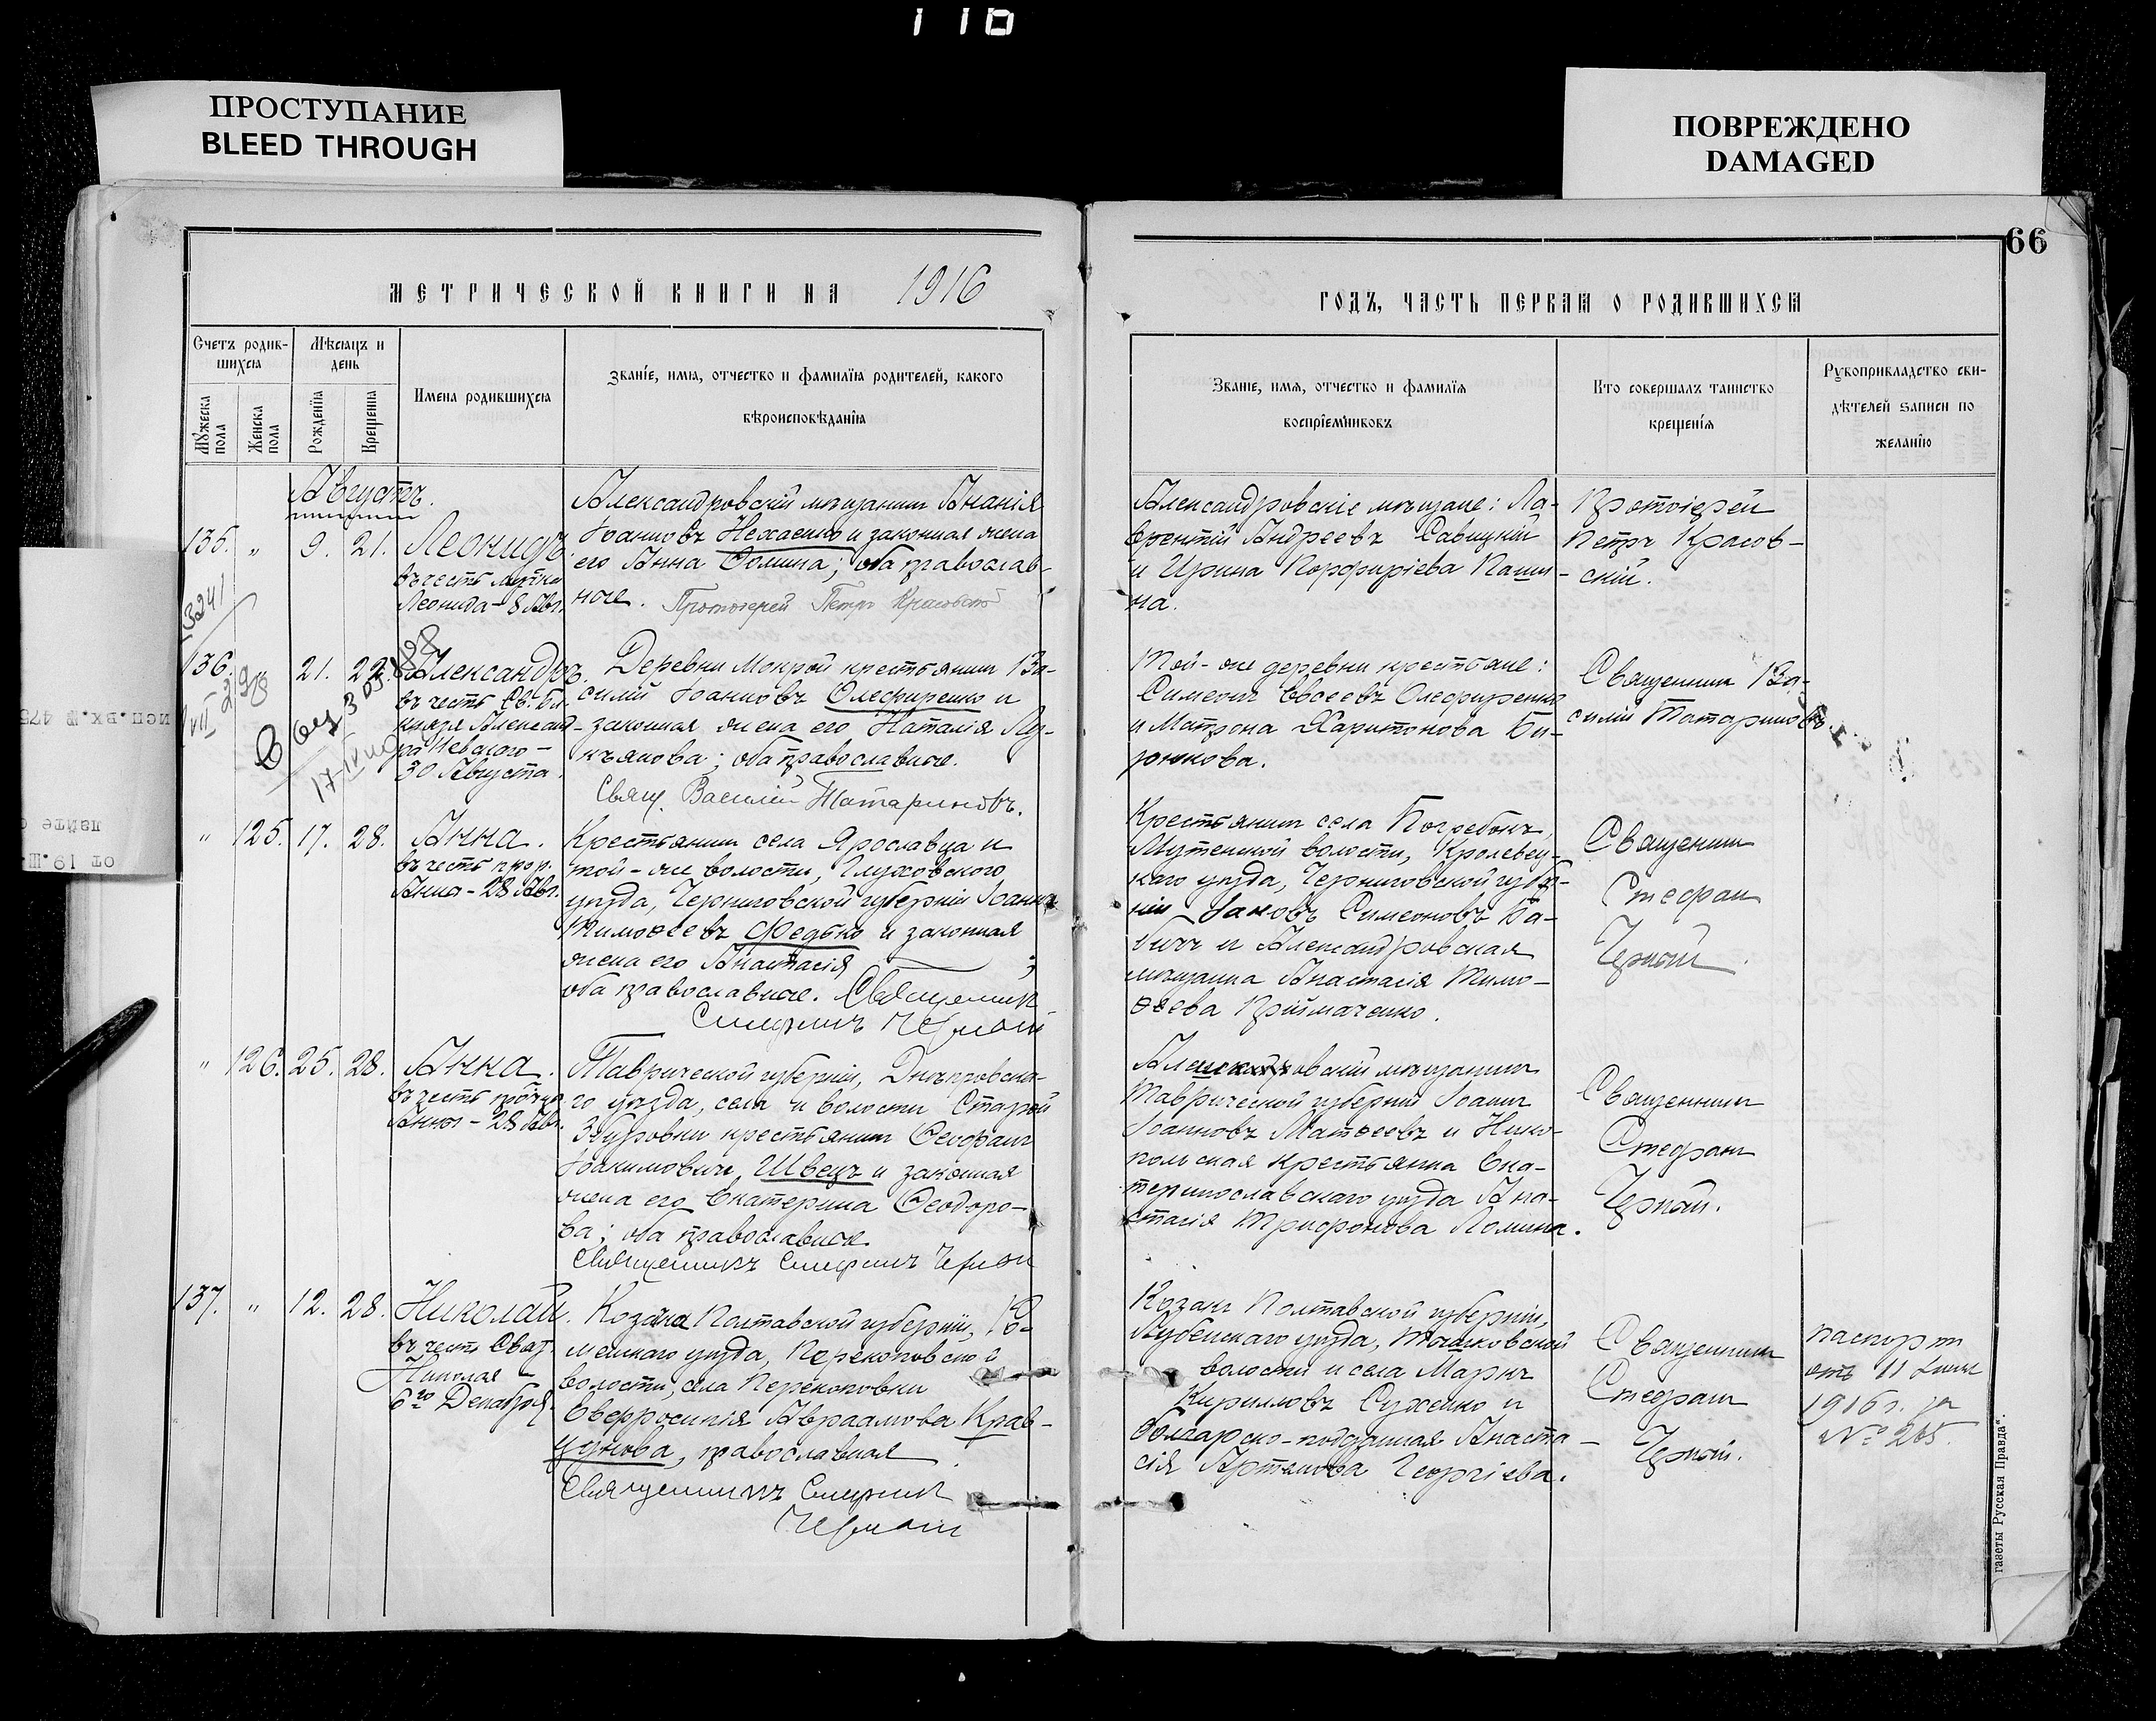 116
ПРОСТУПАНИЕ
BLEED THROUGH
ПОВРЕЖДЕНО
DAMAGED
66
МЕТРИЧЕСКОЙ КНИГИ НА 1916
ГОДЪ, ЧАСТЬ ПЕРВАЯ О РОДИВШИХСЯ
Счетъ родив-
шихся
Мужеска пола
Женска пола
Мѣсяцъ и
день
Рожденїя
Крещенїя
Имена родившихся
Званїе, имя, отчество и фамилїя родителей, какого
вѣроисповѣданїя
Званїе, имя, отчество и фамилїя
воспрїемниковъ
Кто совершалъ таинство
крещенїя
Рукоприкладство сви-
дѣтелей записи по
желанїю
Августъ.
135. " 9. 21. Леонидъ
въ честь мучен.
Леонида - 8 Авг.
Александровскій мѣщанинъ Ананія
Іоанновъ Нехаенко и законная жена
его Анна Ѳомина; оба православ-
ные. Протоіерей Петръ Красовскій
Александровскіе мѣщане: Ла-
врентій Андреевъ Савицкій
и Ирина Порфиріева Паши-
на.
Протоіерей
Петръ Красов-
скій.
3241
136. 21. 22. Александръ.
въ честь Св. Бл.
князя Александ-
ра Невскаго -
30 Августа.
Деревни Мокрой крестьянинъ Ва-
силій Іоанновъ Олефиренко и
законная жена его Наталія Лу-
кьянова; оба православные.
Свящ. Василій Татариновъ.
Той-же деревни крестьяне:
Симеонъ Евсеевъ Олефиренко
и Матрона Харитонова Би-
рюкова.
Священникъ Ва-
силій Татариновъ
" 125. 17. 28. Анна.
въ честь прор.
Анны - 28 Авг.
Крестьянинъ села Ярославца и
той-же волости, Глуховского
уѣзда, Черниговской губерніи Іоаннъ
Тимоѳеевъ Федько и законная
жена его Анастасія ;
оба православные. Священникъ
Стефанъ Черный
Крестьянинъ села Погребокъ,
Мутенской волости, Кролевец-
каго уѣзда, Черниговской губер-
ніи Іаковъ Симеоновъ Ба-
бичъ и Александровская
мѣщанка Анастасія Тимо-
ѳеева Пріймаченко.
Священникъ
Стефанъ
Черный.
" 126. 25. 28. Анна.
въ честь прор.
Анны - 28 Авг.
Таврической губерніи, Днѣпровска-
го уѣзда, села и волости Старой
Збурьевки крестьянинъ Ѳеофанъ
Іоакимовичъ Швецъ и законная
жена его Екатерина Ѳеодоро-
ва; оба православные.
Священникъ Стефанъ Черный
мѣщанинъ
Таврической губерніи Іоаннъ
Іоанновъ Матѳеевъ и Нико-
польская крестьянка Ека-
теринославскаго уѣзда Ана-
стасія Трифонова Ломина.
Священникъ
Стефанъ
Черный.
137. " 12. 28. Николай.
въ честь Свят.
Николая
6го Декабря
Козачка Полтавской губерніи, Ро-
менскаго уѣзда, Перекоповской
волости, села Перекоповки
Евфросинія Авраамова Крав-
цунова, православная.
Священникъ Стефанъ
Черный
Козакъ Полтавской губерніи,
Лубенскаго уѣзда,
волости и села Маркъ
Кирилловъ Сухенко и
болгарско-подданная Анаста-
сія Артемова Георгіева.
Священникъ
Стефанъ
Черный.
паспортъ
отъ 11
1916 г. за
№ 265.
газеты Русская Правда".